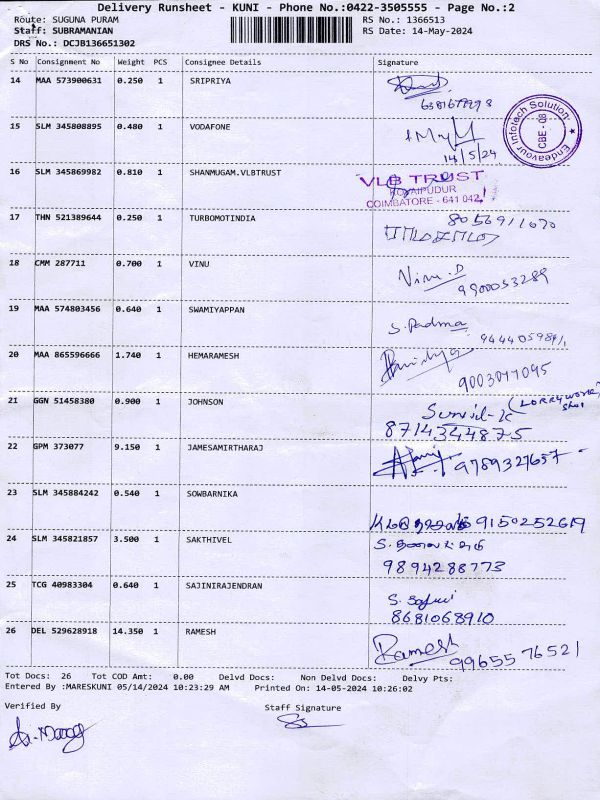 Delivery Runsheet - KUNI - Phone No.:0422-3505555 - Page No.:2
Route: SUGUNA PURAM RS No.: 1366513
Staff: SUBRAMANIAN RS Date: 14-May-2024
DRS No.: DCJB136651302
S No Consignment No Weight PCS Consignee Details Signature
14 MAA 573900631 0.250 1 SRIPRIYA
15 SLM 345808895 0.480 1 VODAFONE
14/5/24
Endeavour Infotech Solution
CBE - 08
16 SLM 345869982 0.810 1 SHANMUGAM.VLBTRUST
VLB TRUST
KOVAIPUDUR
COIMBATORE - 641 042
17 THN 521389644 0.250 1 TURBOMOTINDIA
8056911670
18 CMM 287711 0.700 1 VINU
Vinu.D
9900053289
19 MAA 574803456 0.640 1 SWAMIYAPPAN
S. Padma
20 MAA 865596666 1.740 1 HEMARAMESH
9003077095
21 GGN 51458380 0.900 1 JOHNSON
Sunil-K (LORRY WORK
8714344875
22 GPM 373077 9.150 1 JAMESAMIRTHARAJ
9789327657
23 SLM 345884242 0.540 1 SOWBARNIKA
9150252619
24 SLM 345821857 3.500 1 SAKTHIVEL
9894288773
25 TCG 40983304 0.640 1 SAJINIRAJENDRAN
8681068910
26 DEL 529628918 14.350 1 RAMESH
Ramesh
9965576521
Tot Docs: 26 Tot COD Amt: 0.00 Delvd Docs: Non Delvd Docs: Delvy Pts:
Entered By :MARESKUNI 05/14/2024 10:23:29 AM Printed On: 14-05-2024 10:26:02
Verified By Staff Signature